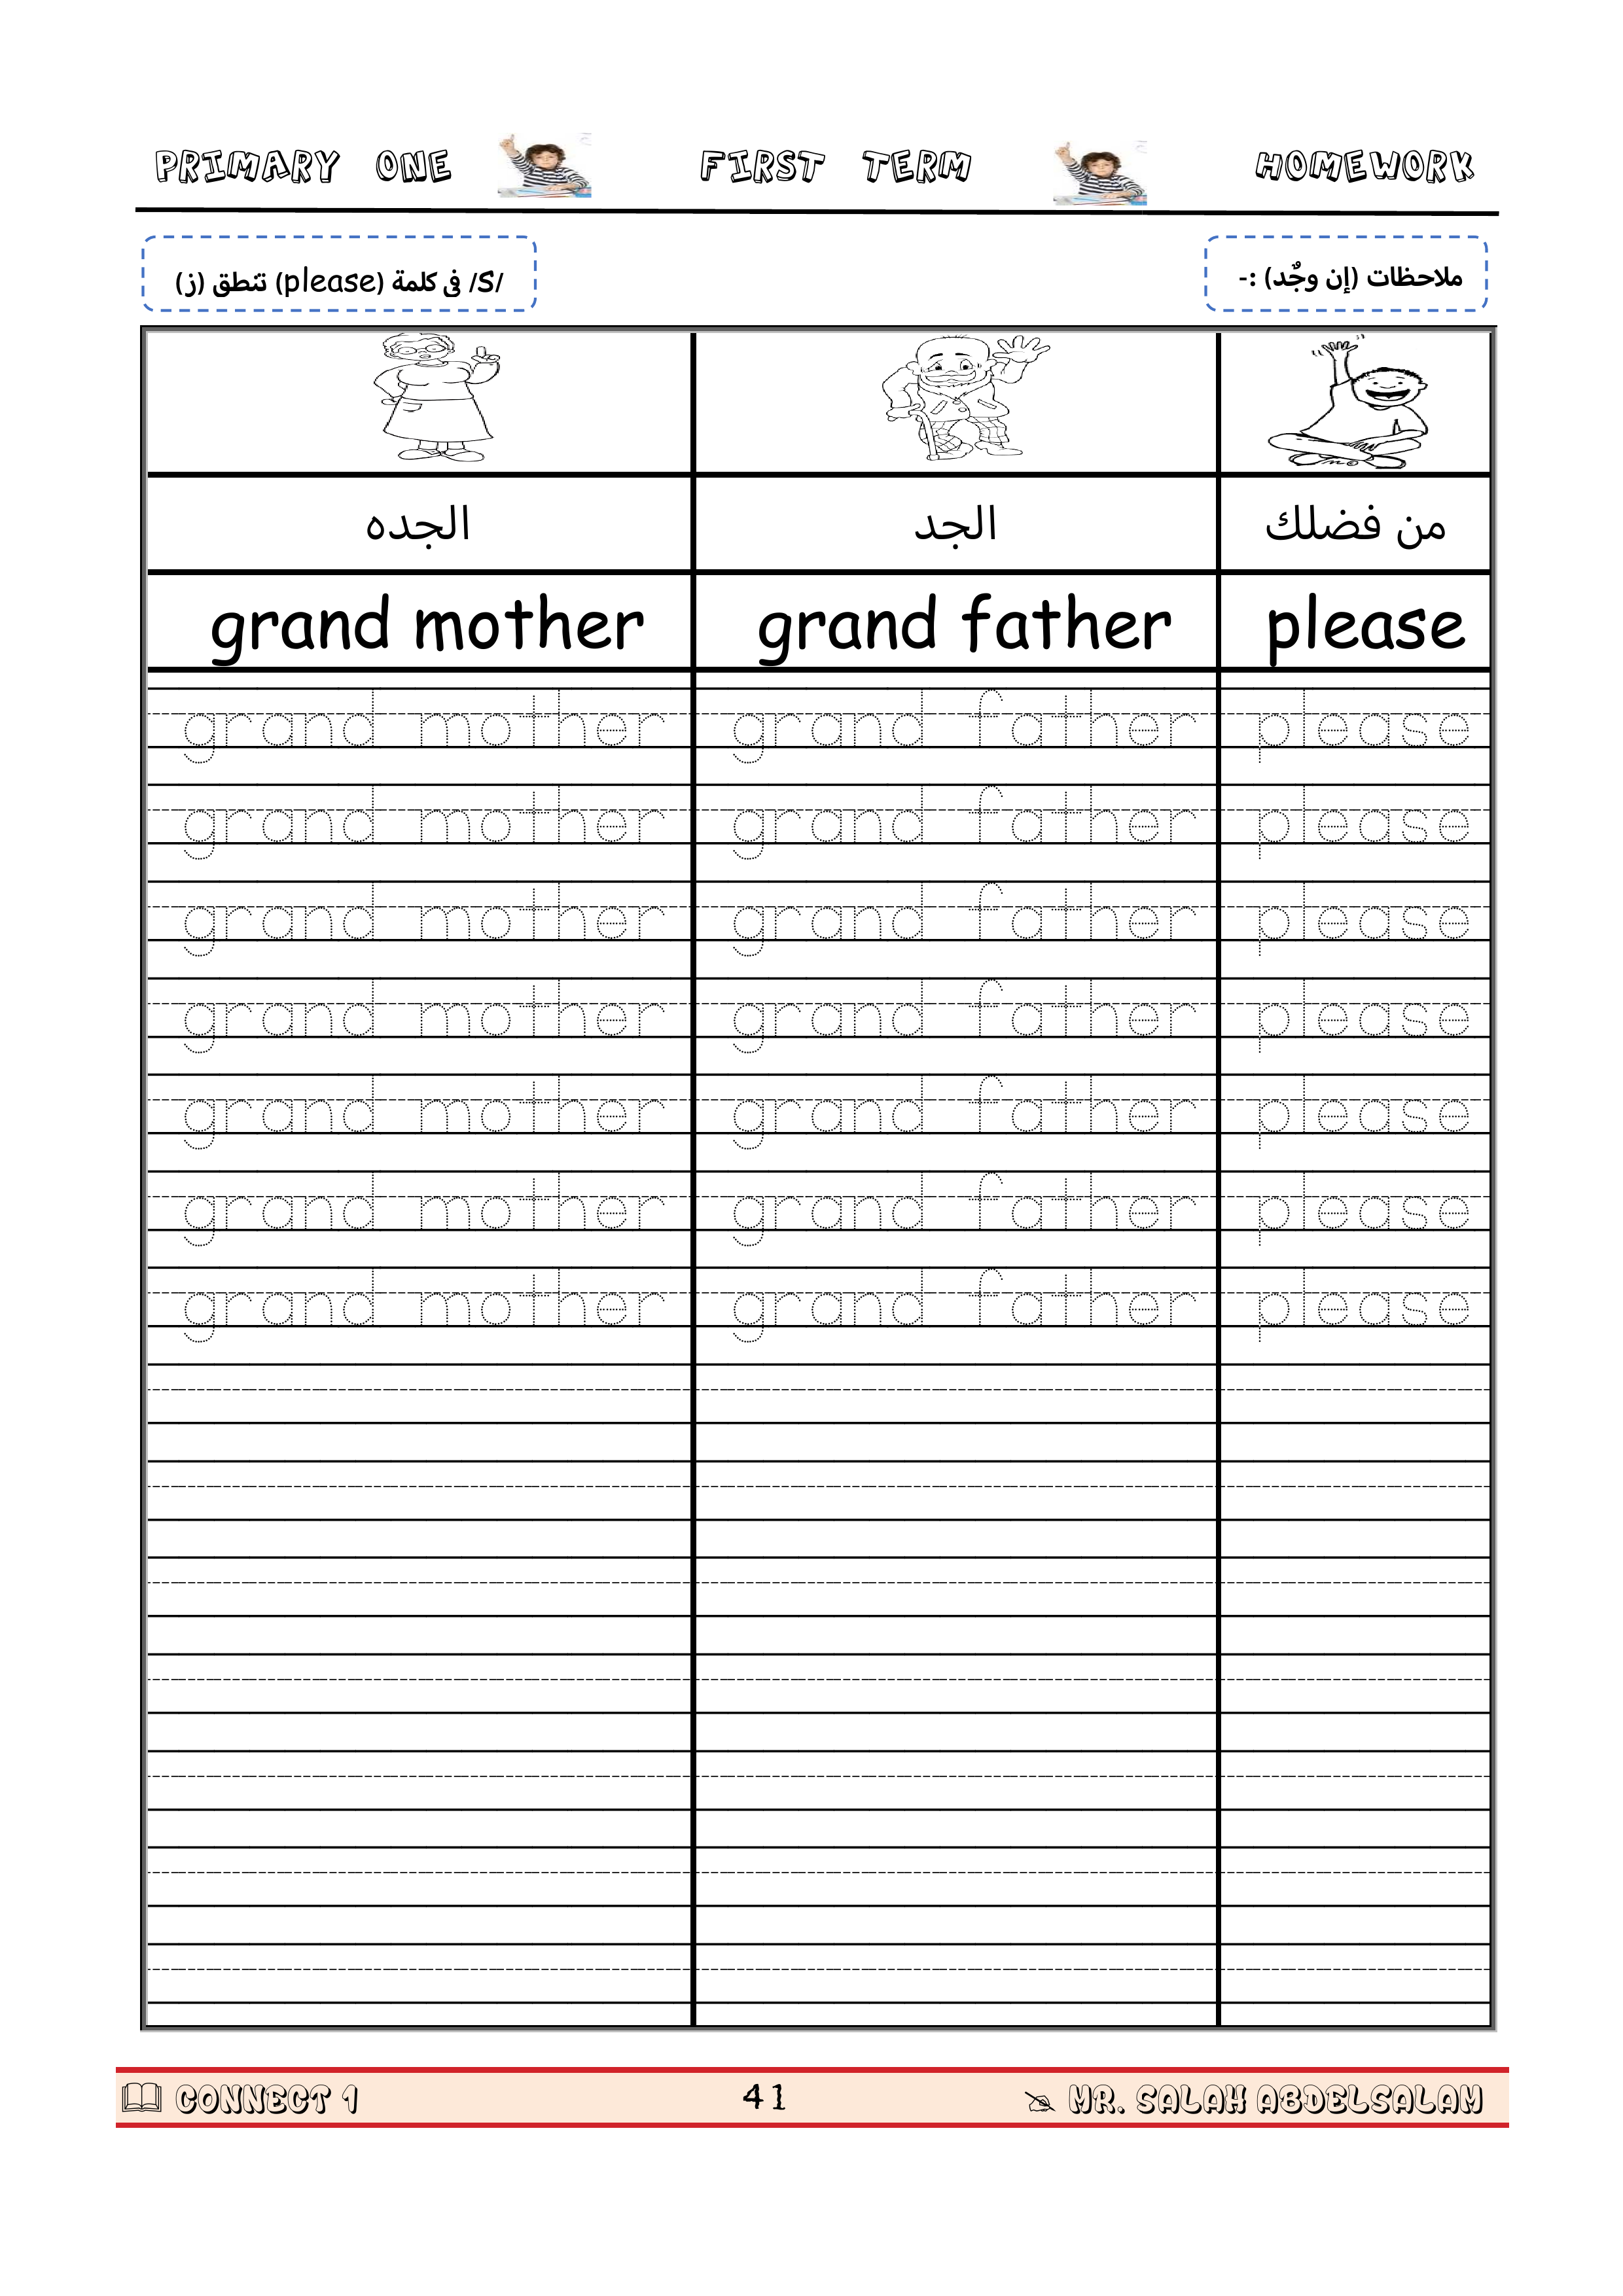 PRIMARY ONE FIRST TERM HOMEWORK
ملاحظات (إن وجٌد) :-
/s/ فى كلمة (please) تنطق (ز)
الجده الجد من فضلك
grand mother grand father please
grand mother grand father please
grand mother grand father please
grand mother grand father please
grand mother grand father please
grand mother grand father please
grand mother grand father please
grand mother grand father please
CONNECT 1 41 MR. SALAH ABDELSALAM